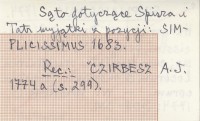 Są to dotyczące Spisza i
Tatr wyjątki z pozycji: SIM-
PLICISSIMUS 1683.
Rec.: CZIRBESZ A.J.
1774a (s. 299).